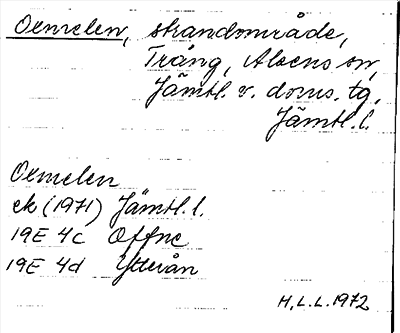 Oenrelen, strandområde,
Trång, Alsens sn,
Jämtl. v. doms. tg,
Jämtl. l.
Oenrelen
ek (1971) Jämtl. l.
19E 4c Offne
19E 4d Ytterån
H.L.L. 1972